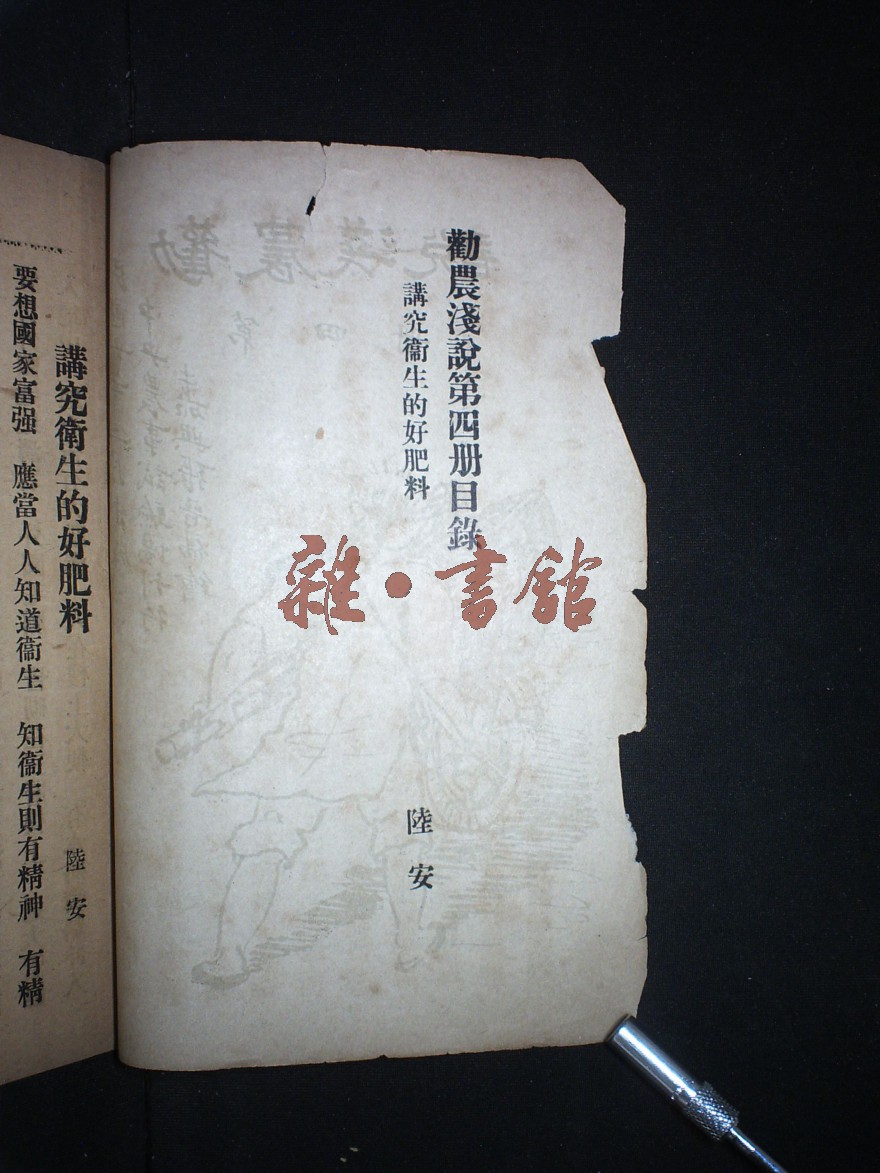 勸農淺說第四册目錄
講究衞生的好肥料
陸安
雜·書館
講究衛生的好肥料
陸安
要想國家富强 應當人人知道衞生 知衞生則有精神 有精